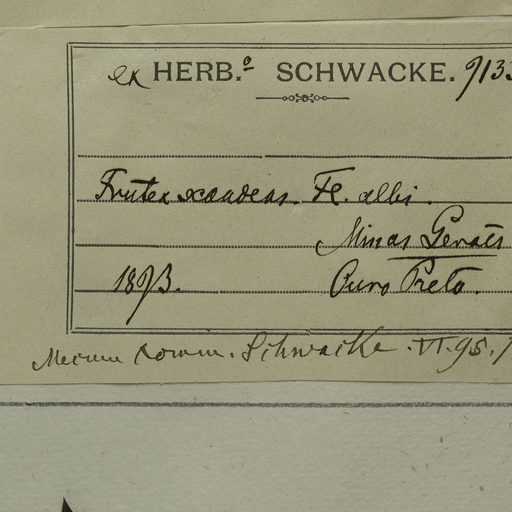 ex HERB.º SCHWACKE. 9133
Frutex scandens. Fl. albi.
Minas Geraës
1893. Ouro Preto.
Mecum comm. Schwacke. VI. 95.